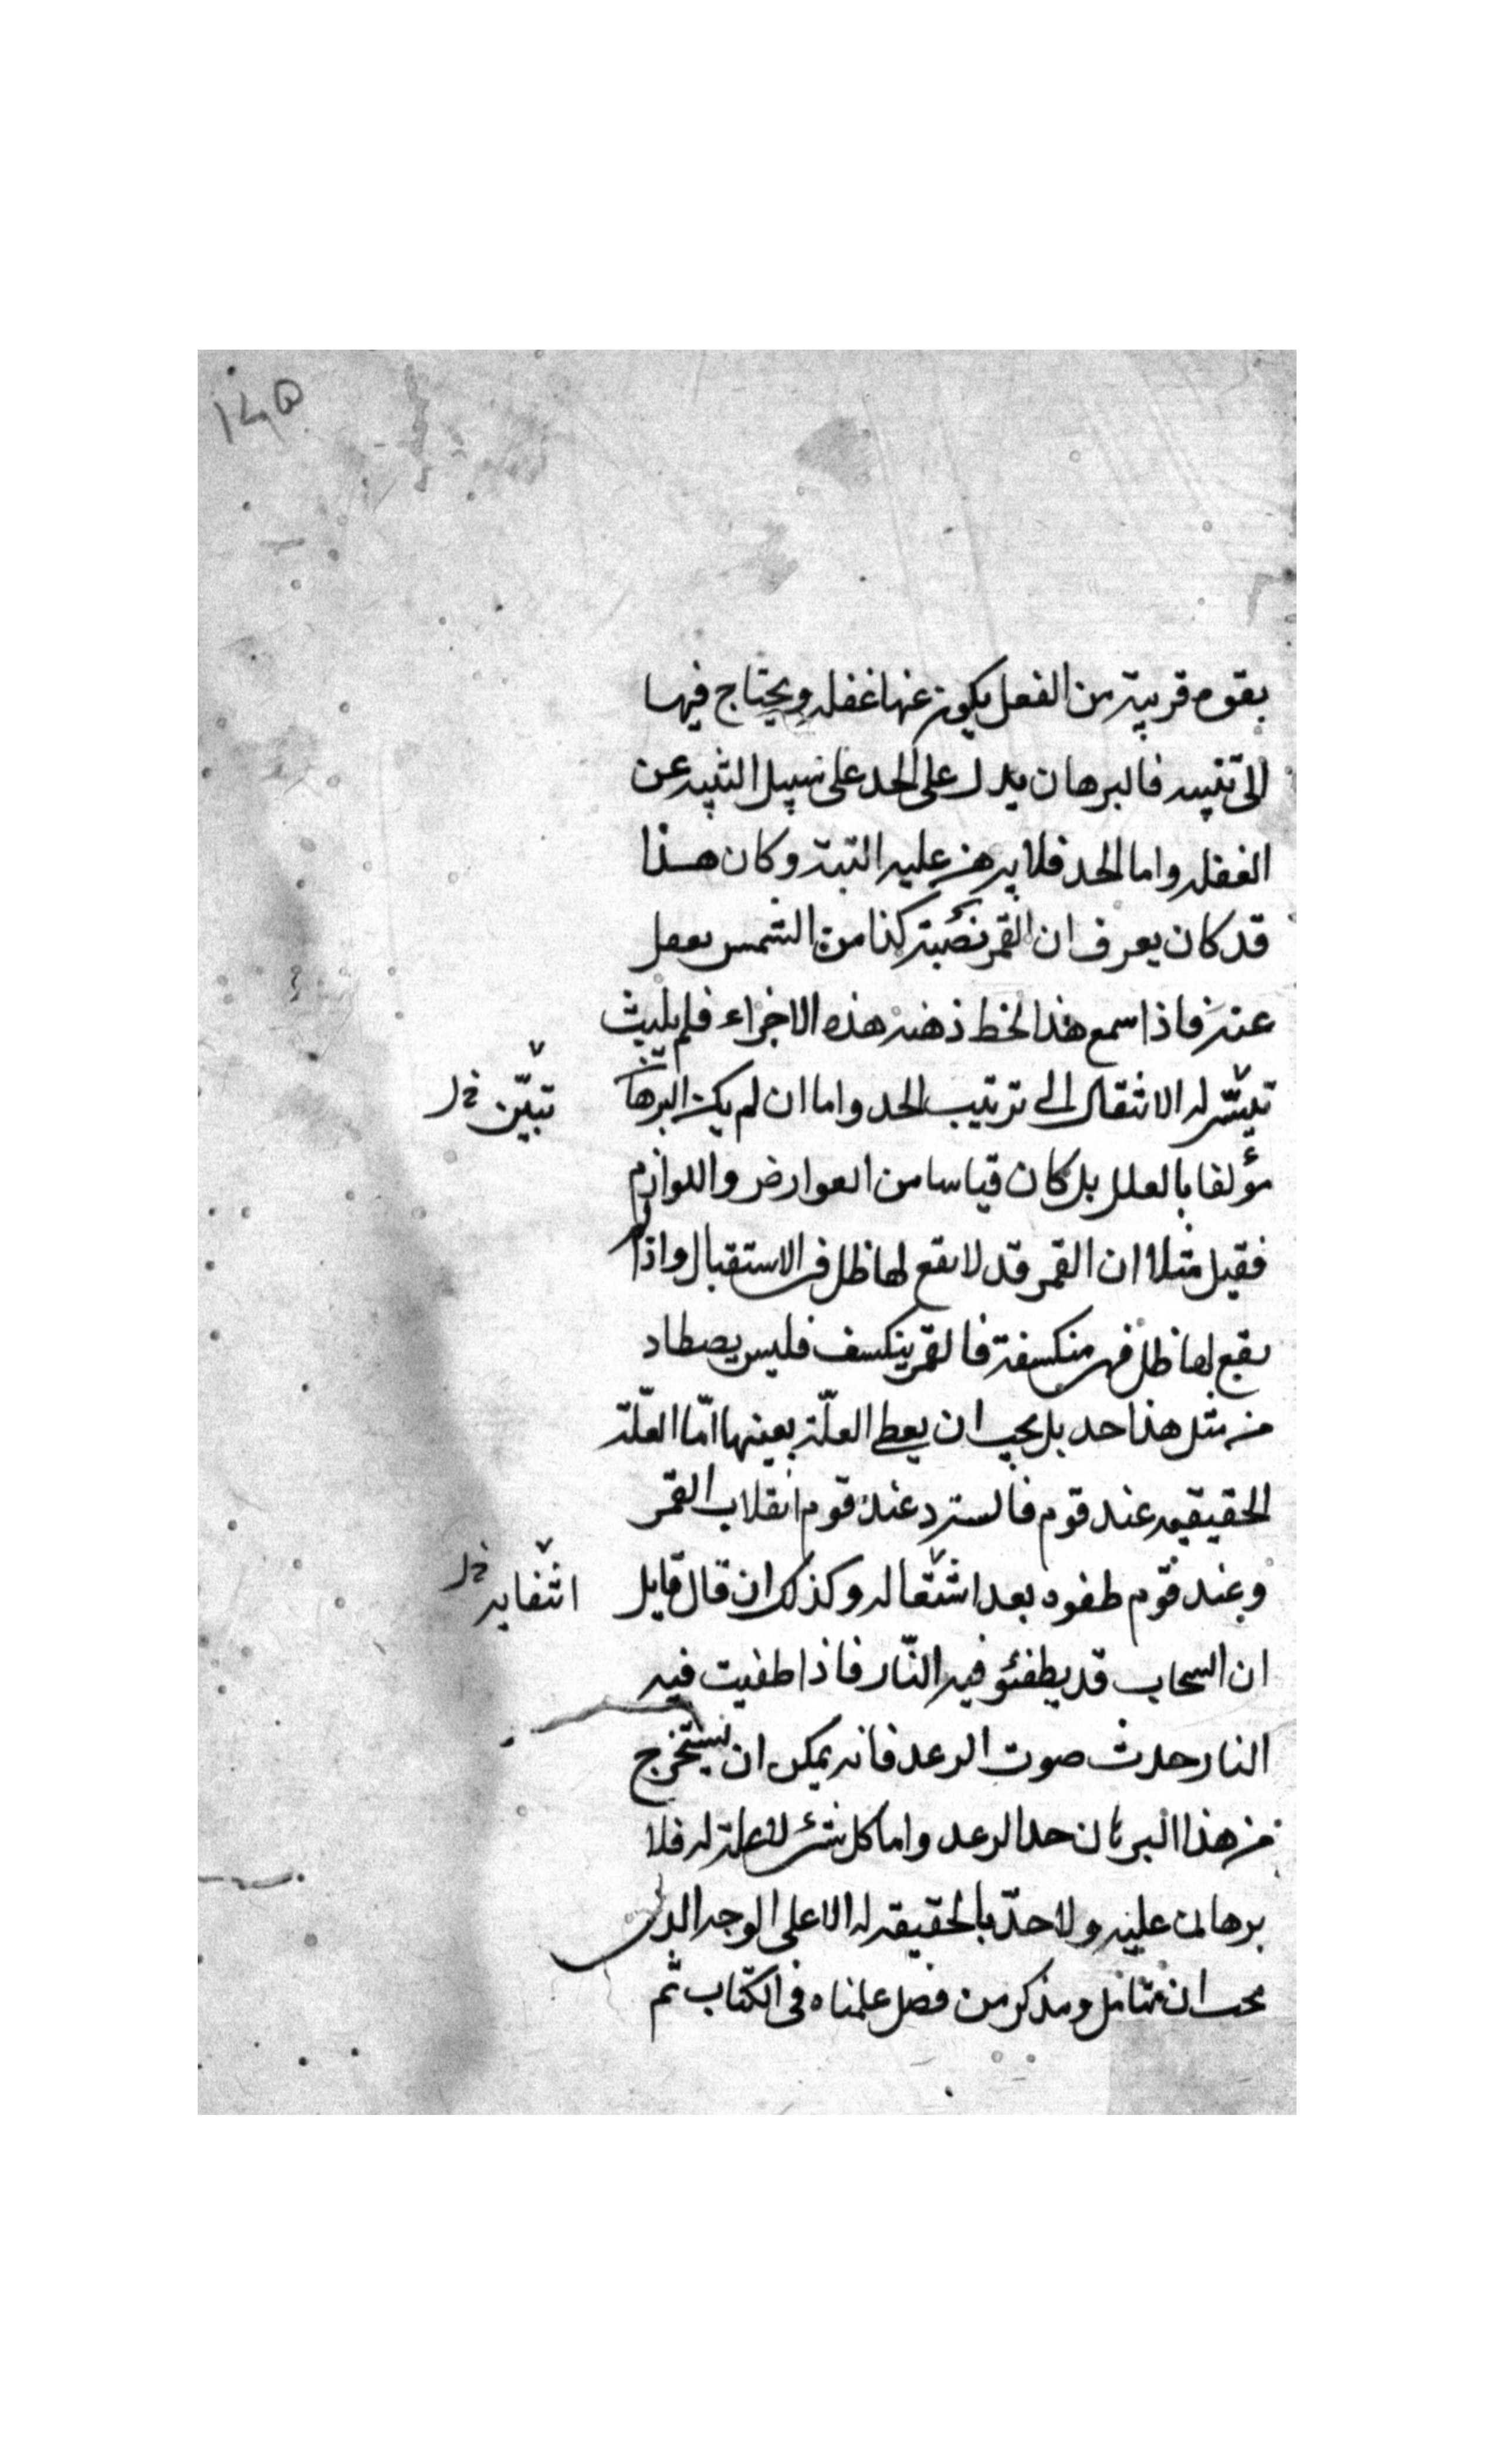 ١٤٥
بقوه قريبة من الفعل يكون عنها غفله ويحتاج فيها
الى تنبيه فالبرهان يدل على الحد على سبيل التنبيه عن
الغفله واما الحد فلا يبرهن عليه البتة وكان هذا
قد كان يعرف ان القمر نصبته كذا من الشمس
فاذا سمع هذا ذهنه هذه الاجزاء فلم يلبث
له الانتقال الى ترتيب الحد واما ان لم يكن البرهان
تبيّن خ ل
مؤلفا بالعلل بل كان قياسا من العوارض واللوازم
فقيل مثلا ان القمر قد لا يقع لها ظل فى الاستقبال واذا
يقع لها ظل فهى منكسفة فالقمر ينكسف فليس يصطاد
من مثل هذا حد بل يجب ان يعطى العلّة بعينها امّا العلّة
الحقيقيه عند قوم فالستر وعند قوم انقلاب القمر
وعند قوم طفوه بعد اشتعاله وكذلك ان قال قايل
خ ل
ان السحاب قد يطفئو فيه النّار فاذا طفيت فيه
النار حدث صوت الرعد فانه يمكن ان يستخرج
من هذا البرهان حد الرعد واما كل شئ لا علة له فلا
برهان عليه ولا حدّ بالحقيقه له الا على الوجه الذى
يجب ان نتامل ونذكر من فصل علمناه فى الكتاب ثم